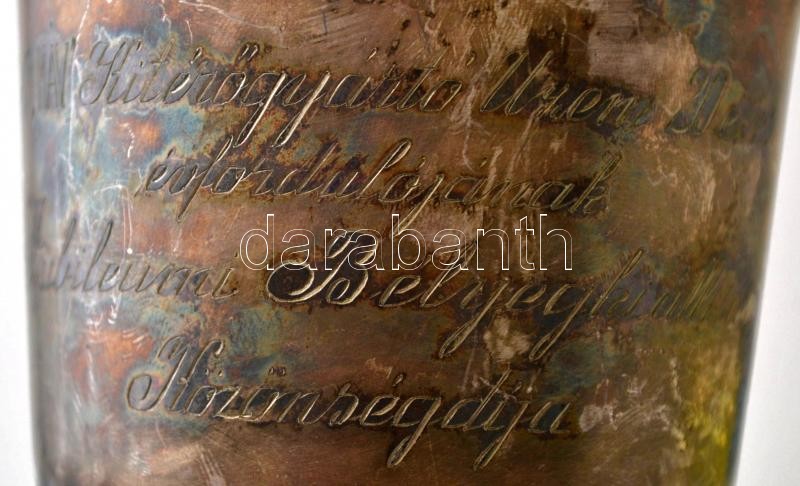 MÁV Kitérőgyártó Üzem
évfordulójának
Jubileumi Bélyegkiáll
Közönségdíja
darabanth